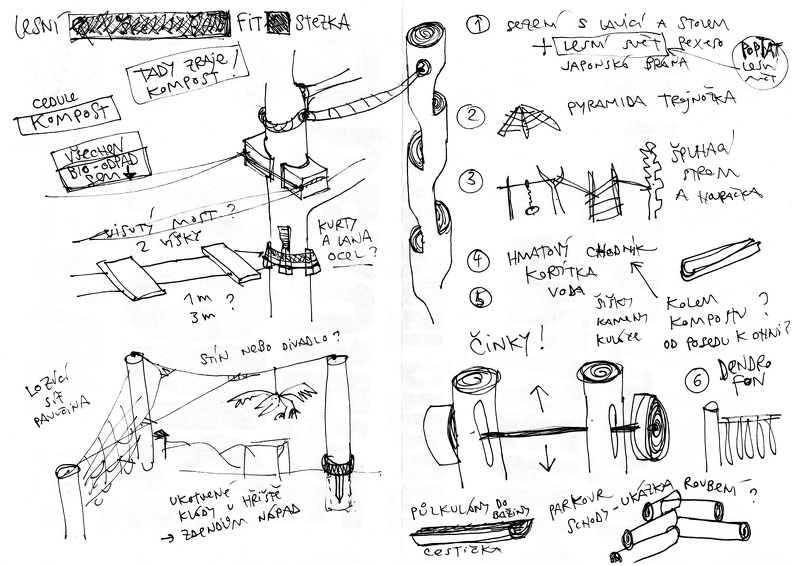 LESNÍ FIT STEZKA
TADY ZRAJE
KOMPOST!
CEDULE
KOMPOST
VŠECHEN
BIO-ODPAD
SEM
VISUTÝ MOST?
2 VÝŠKY
KURTY
A LANA
OCEL?
1m
3m ?
STÍN NEBO DIVADLO?
LOZÍCÍ
SÍŤ
PAVUČINA
UKOTVENÉ
KLÁDY U HŘIŠTĚ
→ ZDENDŮV NÁPAD
1 SEZENÍ S LAVICÍ A STOLEM
+ LESNÍ SVĚT PEXESO
JAPONSKÁ BRÁNA
POPTAT
LESNÍ
SVĚT
2 PYRAMIDA TROJNOŽKA
3 ŠPLHACÍ
STROM
A HOUPAČKA
4 HMATOVÝ CHODNÍK
KORÝTKA
VODA
5
ŠIŠKY
KAMENY
KULÁČE
KOLEM
KOMPOSTU ?
OD POSEDU K OHNI?
ČINKY!
6 DENDRO
FON
PŮLKULÁNY DO
BAŽINY
CESTIČKA
PARKOUR
SCHODY - UKÁZKA ROUBENÍ ?